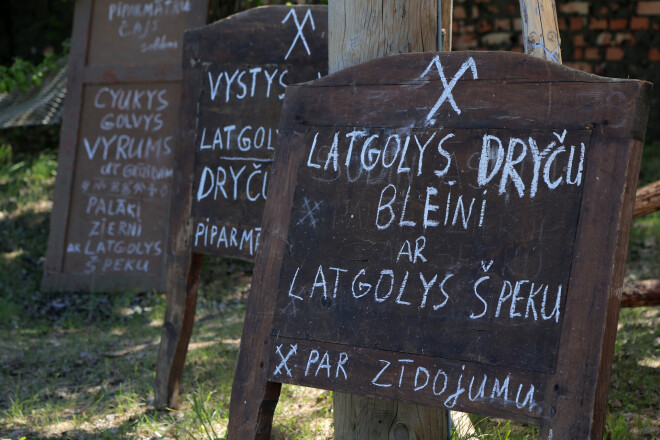 PIPARMĀTRU
ČAJS
CYUKYS
GOLVYS
VYRUMS
PALĀKI
ZIERNI
AR LATGOLYS
ŠPEKU
VYSTYS
LATGOLY
DRYČU
PIPARMĀ
LATGOLYS DRYČU
BLEINI
AR
LATGOLYS ŠPEKU
PAR ZĪDOJUMU